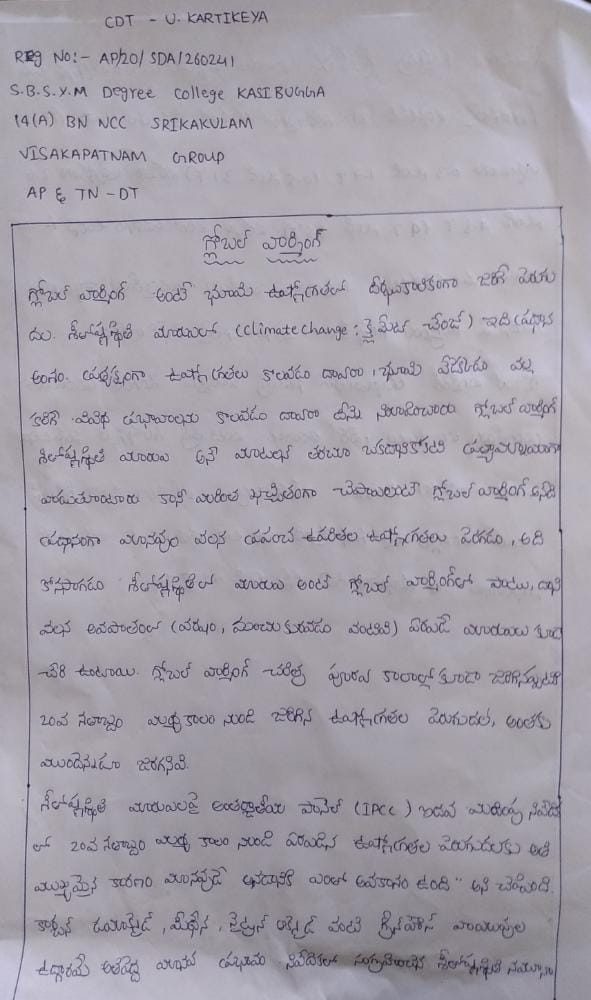 CDT - U. KARTIKEYA
REg No:- AP/20/SDA/260241
S.B.S.Y.M Degree college KASIBUGGA
14(A) BN NCC SRIKAKULAM
VISAKAPATNAM GROUP
AP & TN - DT
గ్లోబల్ వార్మింగ్
గ్లోబల్ వార్మింగ్ అంటే భూమి ఉష్ణోగ్రతలో దీర్ఘకాలికంగా జరిగే పెరుగు
దల. శీతోష్ణస్థితి మార్పులో (climate change: క్లైమేట్ చేంజ్) ఇది ప్రధాన
అంశం. ప్రత్యక్షంగా ఉష్ణోగ్రతలు కొలవడం ద్వారా, భూమి వేడెక్కడం వల్ల
కలిగే వివిధ ప్రభావాలను కొలవడం ద్వారా దీన్ని నిరూపించారు గ్లోబల్ వార్మింగ్
శీతోష్ణస్థితి మార్పు అనే మాటలను తరచూ ఒకదానికొకటి పర్యాయపదంగా
వాడుతూంటారు కానీ మరింత ఖచ్చితంగా చెప్పాలంటే గ్లోబల్ వార్మింగ్ అనేది
ప్రధానంగా మానవుల వలన ప్రపంచ ఉపరితల ఉష్ణోగ్రతలు పెరగడం, అది
కొనసాగడం శీతోష్ణస్థితిలో మార్పు అంటే గ్లోబల్ వార్మింగ్‌తో పాటు, దాని
వలన అవపాతంలో (వర్షం, మంచు కురవడం వంటివి) ఏర్పడే మార్పులు కూడా
చేరి ఉంటాయి. గ్లోబల్ వార్మింగ్ చరిత్ర పూర్వ కాలాల్లో కూడా జరిగినప్పటికీ
20వ శతాబ్దం మధ్య కాలం నుండి జరిగిన ఉష్ణోగ్రతల పెరుగుదల, అంతకు
ముందెన్నడూ జరగనివి.
శీతోష్ణస్థితి మార్పులపై అంతర్జాతీయ పానెల్ (IPCC) ఐదవ మదింపు నివేదిక
లో 20వ శతాబ్దం మధ్య కాలం నుండి ఏర్పడిన ఉష్ణోగ్రతల పెరుగుదలకు అతి
ముఖ్యమైన కారణం మానవుడే అవడానికి ఎంతో అవకాశం ఉంది" అని చెప్పింది.
కార్బన్ డయాక్సైడ్, మీథేన్, నైట్రస్ ఆక్సైడ్ వంటి గ్రీన్‌హౌస్ వాయువుల
ఉద్గారమే అతిపెద్ద మానవ ప్రభావం నివేదికలో సంగ్రహించిన శీతోష్ణస్థితి నమూనా